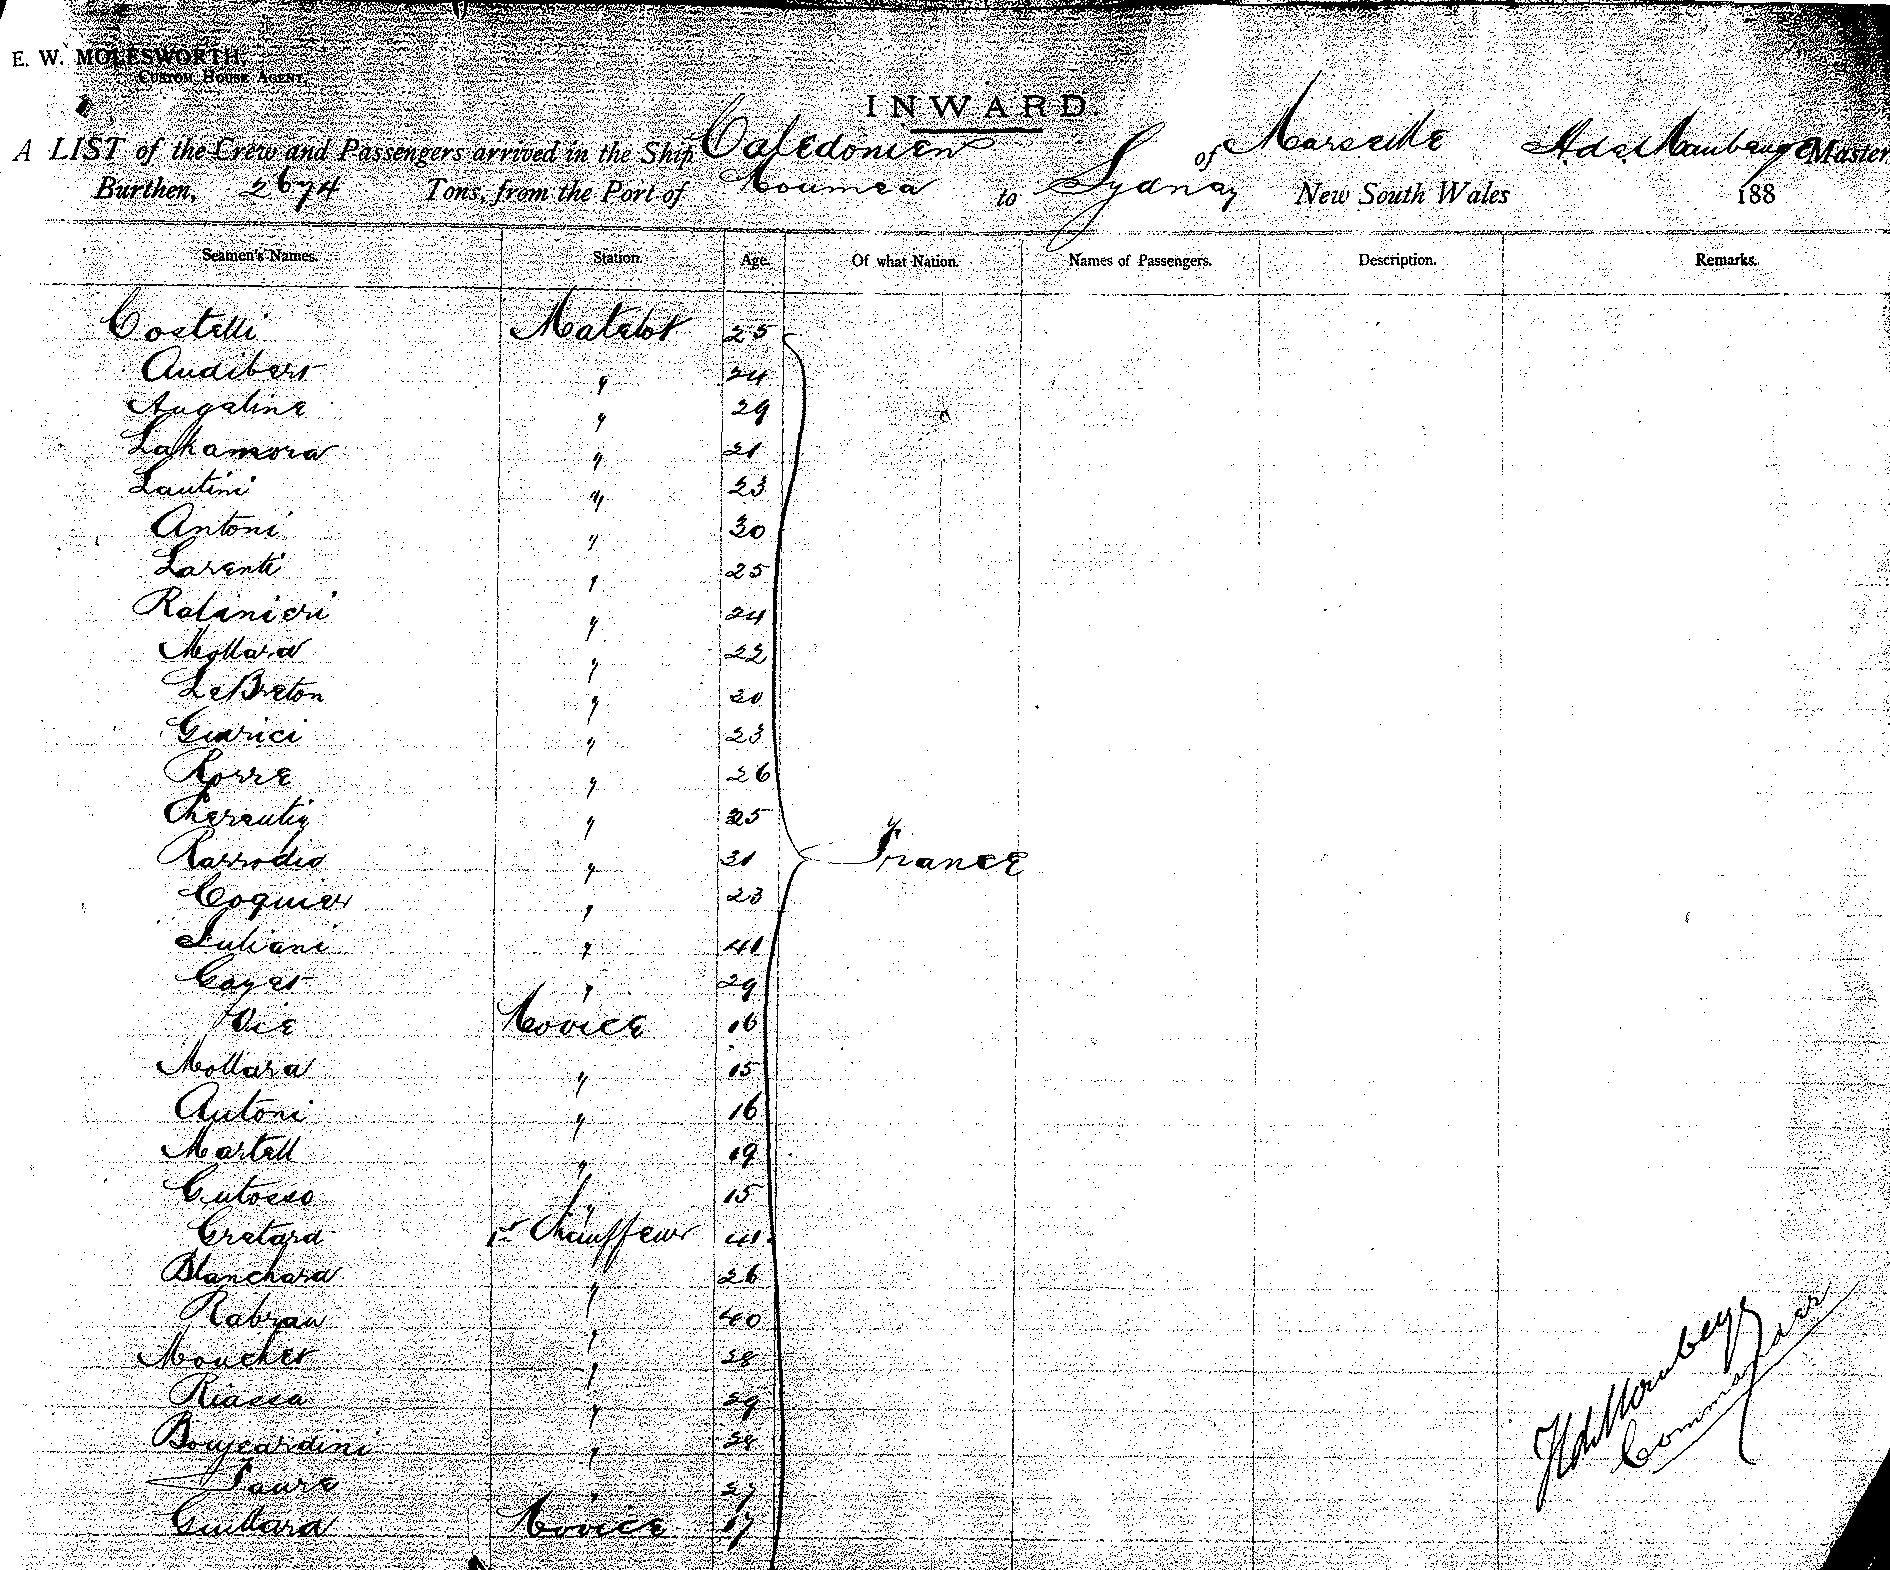 E. W. MOLESWORTH,
CUSTOM HOUSE AGENT.
INWARD.
A LIST of the Crew and Passengers arrived in the Ship Caledonien of Marseille H. de Maubeuge Master
Burthen, 2674 Tons, from the Port of Noumea to Sydney New South Wales 188
Seamen's Names. Station. Age. Of what Nation. Names of Passengers. Description. Remarks.
Costelli Matelot 25
Audibert " 24
Augeline " 29
Lakamora " 21
Lautini " 23
Antoni " 30
Larenti " 25
Ratinieri " 24
Mollard " 22
Le Breton " 20
Giarici " 23
Rorre " 26
" 25
Rarrodio " 21 France
Coquier " 23
Juliani " 41
Cayet " 29
Vie Novice 16
Mollara " 15
Antoni " 16
Martell " 19
Cutosso " 15
Cretard 1er Chauffeur 41
Blanchard " 26
Rabrau " 40
Mouchet " 28
Riassa " 29
" 28
Faure " 27
Guillard Novice 17
H de Maubeuge
Commander